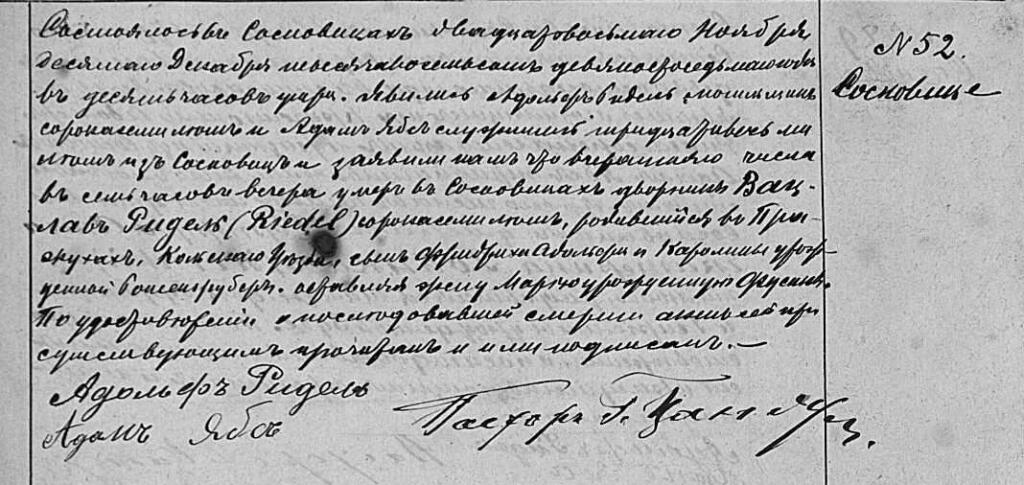 Состоялось въ Сосновицахъ двадцатовосьмаго Ноября
десятаго Декабря тысяча восемьсотъ девяностоседьмаго года
въ десять часовъ утра. Явились Адольфъ Ридель
сорока семи лѣтъ и Адамъ Ябсъ служащій тридцати восьми
лѣтъ изъ Сосновицъ и заявили намъ что вчерашняго числа
въ семь часовъ вечера умеръ въ Сосновицахъ дворникъ Вац-
лавъ Ридель (Riedel) сорока семи лѣтъ, родившійся въ
уѣзда, сынъ Фридриха Адольфа и Каролины урож-
денной оставилъ жену Марію урожденную
По удостовѣреніи о послѣдовавшей смерти актъ сей при
сутствующимъ прочитанъ и ими подписанъ.—
Адольфъ Ридель
Адамъ Ябсъ
Пасторъ Г.
N 52.
Сосновице